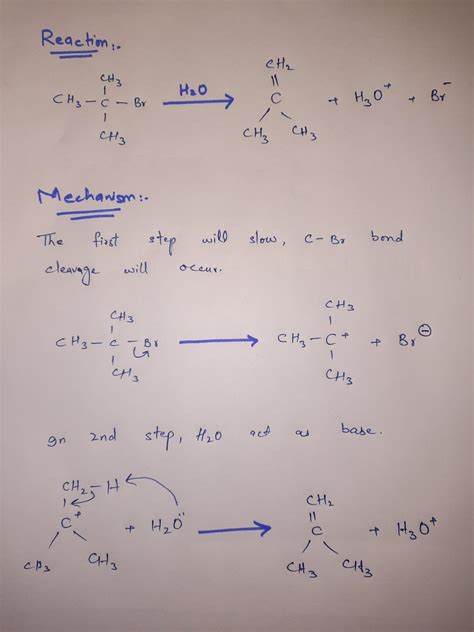 Reaction:-
CH2
CH3 ||
CH3 - C - Br H2O C + H3O+ + Br-
CH3 CH3 CH3
Mechanism:-
The first step will slow, C-Br bond
cleavage will occur.
CH3 CH3
CH3 - C - Br CH3 - C+ + Br⊖
CH3 CH3
In 2nd step, H2O act as base.
CH2 - H CH2
C+ + H2O C + H3O+
CH3 CH3 CH3 CH3